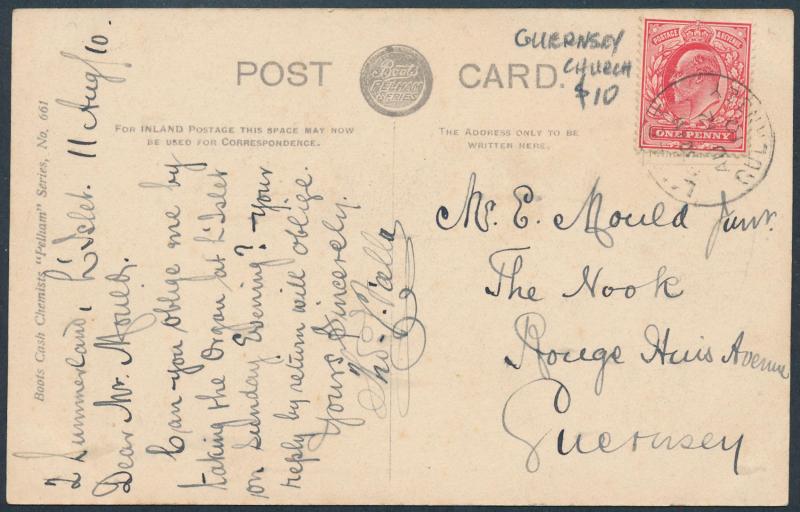 POST CARD.
Boots PELHAM SERIES
GUERNSEY
CHURCH
$10
POSTAGE & REVENUE
ONE PENNY
GUERNSEY
FOR INLAND POSTAGE THIS SPACE MAY NOW
BE USED FOR CORRESPONDENCE.
THE ADDRESS ONLY TO BE
WRITTEN HERE.
Boots Cash Chemists "Pelham" Series, No. 661
Summerland, L'Islet. 11 Aug/10.
Dear Mr. Mould,
Can you oblige me by
taking the Organ at L'Islet
on Sunday Evening? Your
reply by return will oblige.
Yours Sincerely,
Thos.
Mr. E. Mould Junr.
The Nook
Rouge Huis Avenue
Guernsey